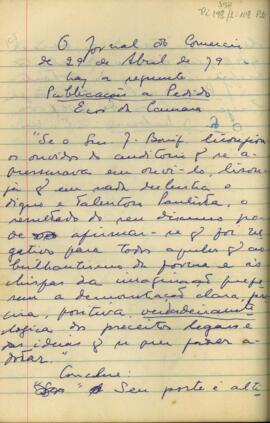 O Jornal do Comercio
de 29 de Abril de 79
traz a seguinte
Publicação a Pedido
Ecos da Camara
"Se o Snr. J. Bonif. lisongeou
os ouvidos do auditorio q se a-
pressurava em ouvi-lo, lison-
ja q em nada deslustra o
digno e talentoso Paulista, o
resultado do seu discurso
afirmar-se q foi ne-
gativo para todos aqueles q ao
brilhantismo da forma e ás
chispas da imaginação prefe-
rem a demonstração clara,
positiva, verdadeiramente
logica dos preceitos legais e
das ideias q se quer fazer a-
dotar."
Conclue:
" Seu porte é alti-